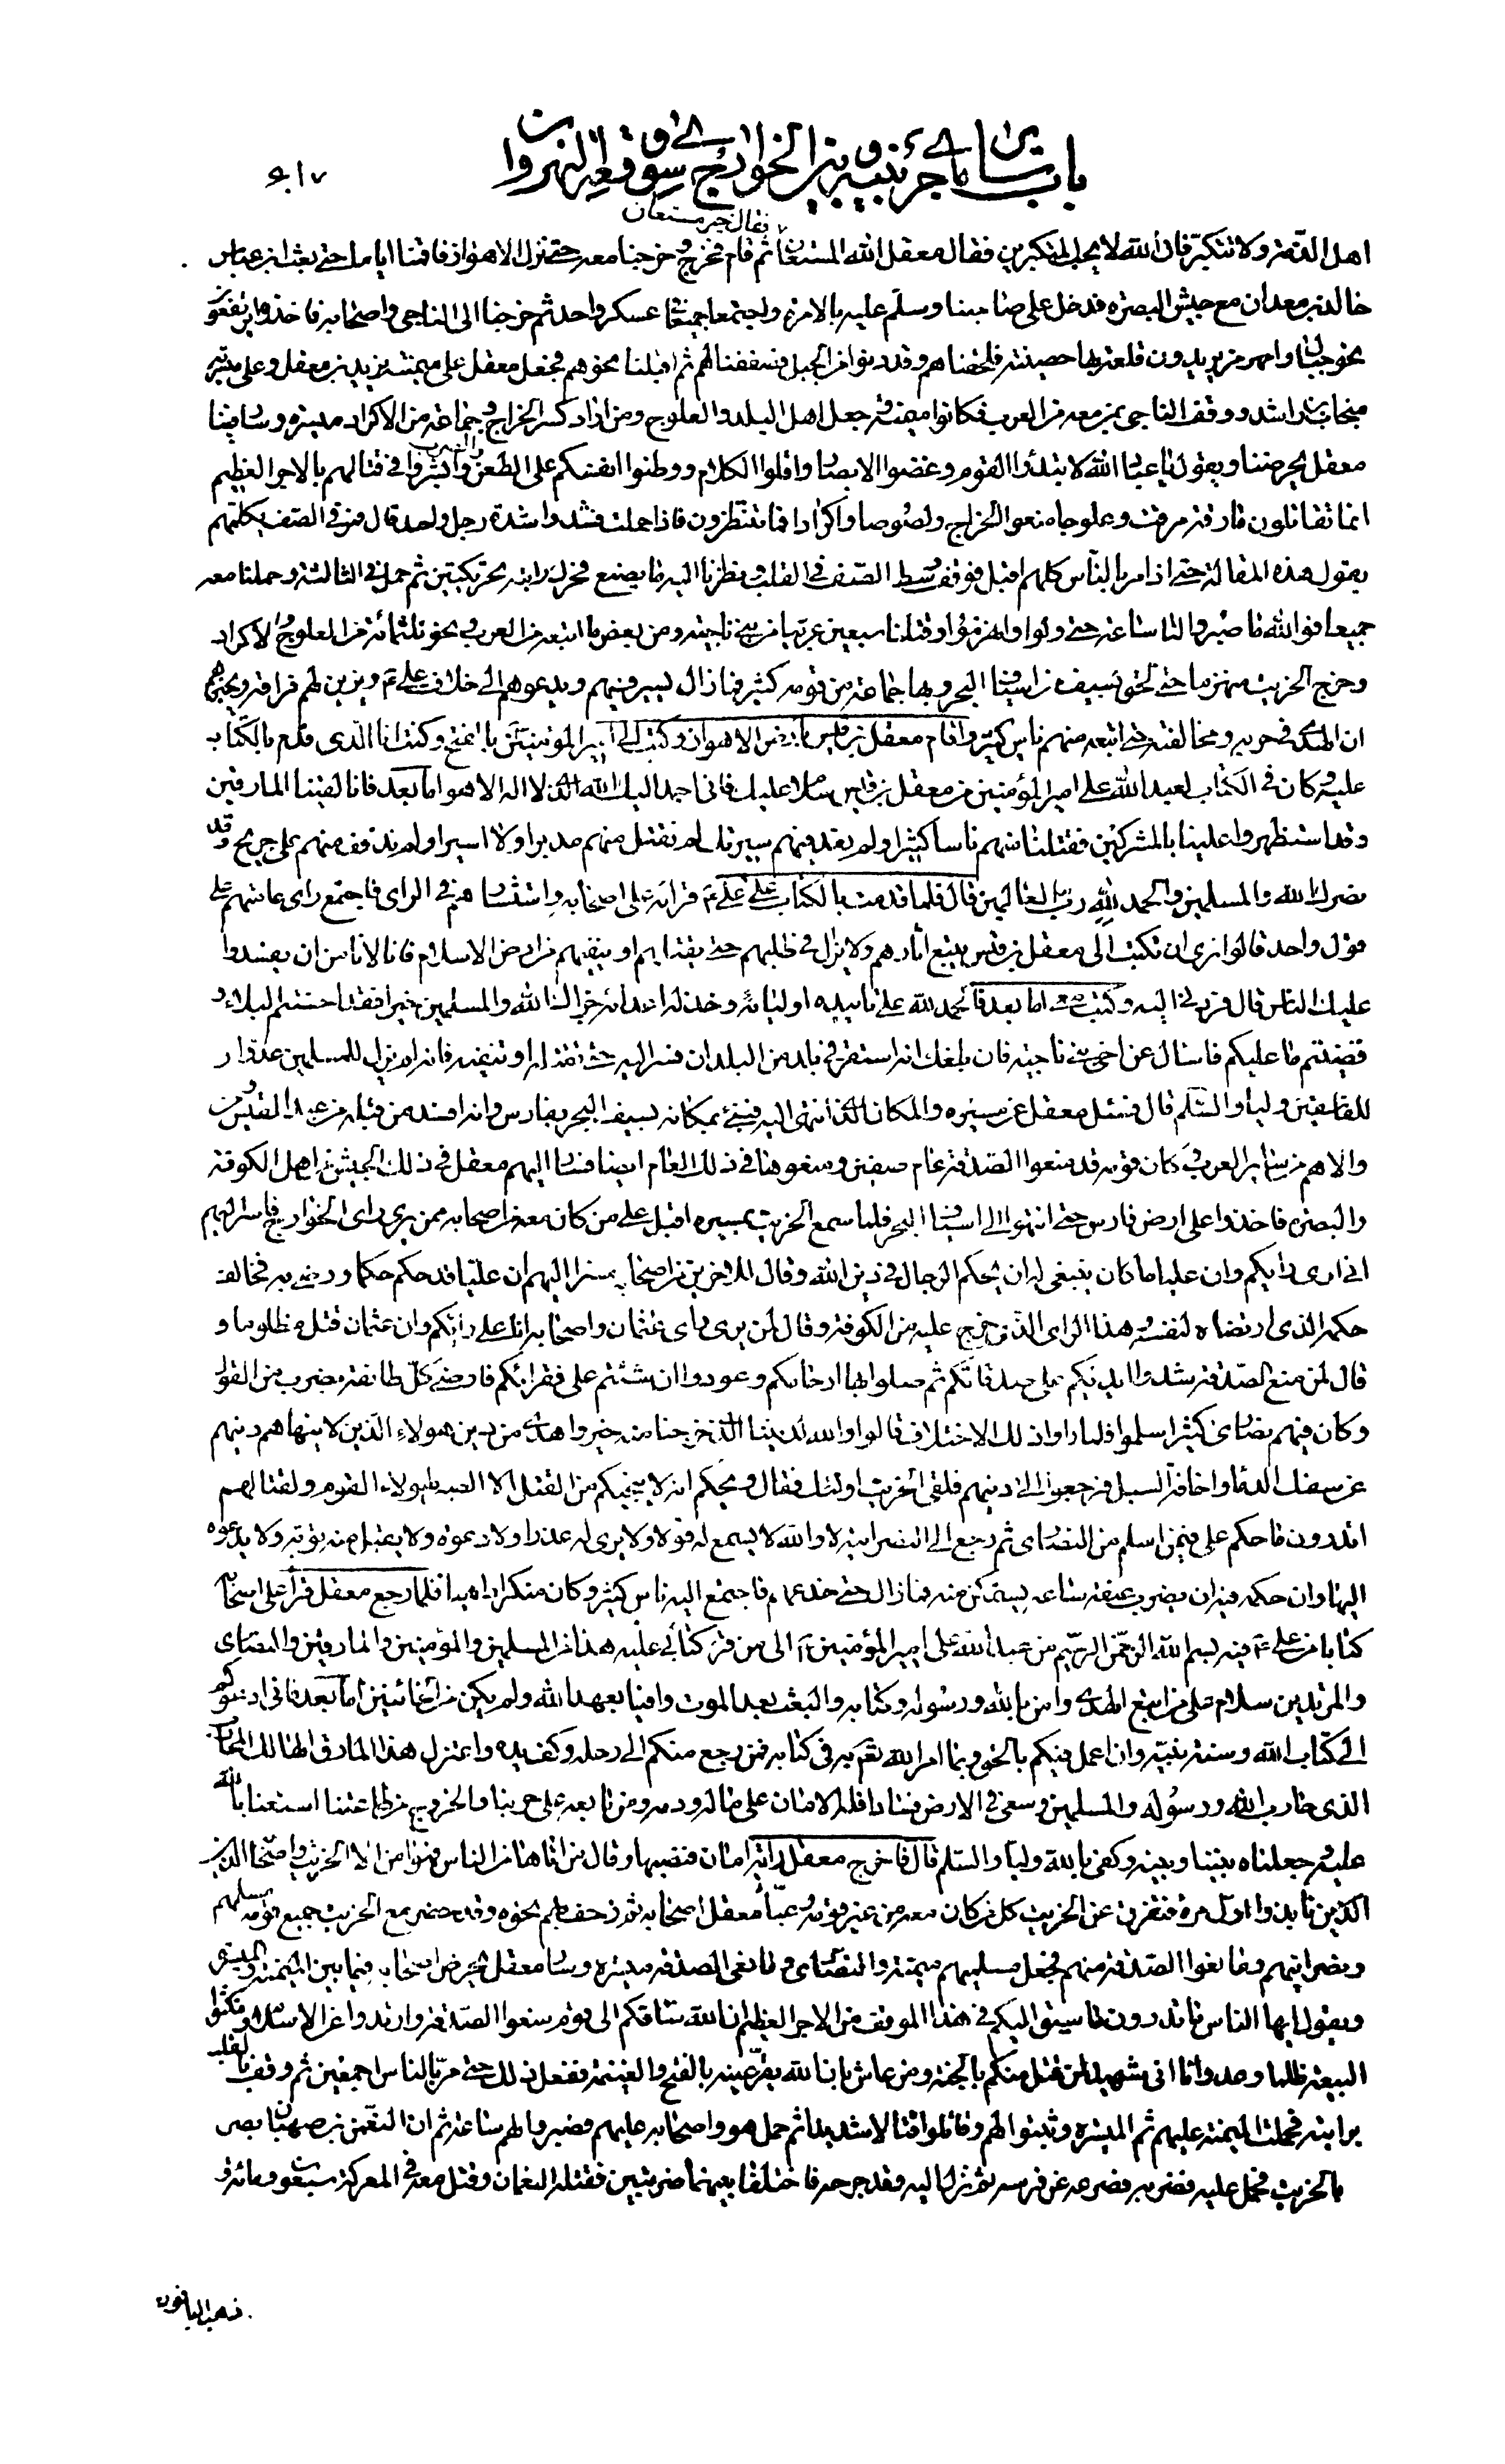 باب سائر ما جرى بينه وبين الخوارج سوى وقعة النهروان
٦١٧
فقال خير مستعان
اهل الذمة ولا تتكبر فان الله لا يحب المتكبرين فقال معقل الله المستعان ثم قام فخرج وخرجنا معه حتى نزل الاهواز فاقمنا اياما حتى بعث ابن عباس
خالد بن معدان مع جيش البصرة فدخل على صاحبنا وسلم عليه بالامرة واجتمعا جميعا في عسكر واحد ثم خرجنا الى الناجي واصحابه فاخذوا يرتفعون
نحو جبال رامهرمز يريدون قلعة بها حصينة فلحقناهم وقد دنوا من الجبل فصففنا لهم ثم اقبلنا نحوهم فجعل معقل على ميمنته يزيد بن معقل وعلى ميسرته
منجاب بن راشد ووقف الناجي بمن معه من العرب فكانوا ميمنة وجعل اهل البلد والعلوج ومن اراد كسر الخراج وجماعة من الاكراد ميسرة وسار فينا
معقل يحرضنا ويقول يا عباد الله لا تبدؤا القوم وغضوا الابصار واقلوا الكلام ووطنوا انفسكم على الطعن والضرب وابشروا في قتالهم بالاجر العظيم
انما تقاتلون مارقة مرقت وعلوجا منعوا الخراج ولصوصا واكرادا فما تنتظرون فاذا حملت فشدوا شدة رجل واحد قال فمر في الصف يكلمهم
يقول هذه المقالة حتى اذا مر بالناس كلهم اقبل فوقف وسط الصف في القلب ونظرنا اليه ما يصنع فحرك رايته تحريكتين ثم حمل في الثالثة وحملنا معه
جميعا فوالله ما صبروا لنا ساعة حتى ولوا وانهزموا وقتلنا سبعين عربيا من بني ناجية ومن بعض من اتبعه من العرب ونحو ثلثمائة من العلوج والاكراد
وخرج الخريت منهزما حتى لحق بسيف من اسياف البحر وبها جماعة من قومه كثير فما زال يسير فيهم ويدعوهم الى خلاف علي ع ويزين لهم فراقه ويخبرهم
ان الهدى في حربه ومخالفته حتى اتبعه منهم ناس كثير واقام معقل بن قيس بارض الاهواز وكتب الى امير المؤمنين ع بالفتح وكنت انا الذي قدم بالكتاب
عليه وكان في الكتاب لعبد الله علي امير المؤمنين من معقل بن قيس سلام عليك فاني احمد اليك الله الذي لا اله الا هو اما بعد فانا لقينا المارقين
وقد استظهروا علينا بالمشركين فقتلنا منهم ناسا كثيرا ولم نعد فيهم سيرتك لم نقتل منهم مدبرا ولا اسيرا ولم ندفف منهم على جريح وقد
نصرك الله والمسلمين والحمد لله رب العالمين قال فلما قدمت بالكتاب على علي ع قراه على اصحابه واستشارهم في الراي فاجتمع راي عامتهم على
قول واحد قالوا نرى ان تكتب الى معقل بن قيس يتبع اثارهم ولا يزال في طلبهم حتى يقتلهم او ينفيهم من ارض الاسلام فانا لا نامن ان يفسدوا
عليك الناس قال فردني اليه وكتب معي اما بعد فالحمد لله على تاييده اولياءه وخذله اعداءه جزاك الله والمسلمين خيرا فقد احسنتم البلاء و
قضيتم ما عليكم فاسال عن اخي بني ناجية فان بلغك انه استقر في بلد من البلدان فسر اليه حتى تقتله او تنفيه فانه لم يزل للمسلمين عدوا و
للفاسقين وليا والسلم قال فسئل معقل عن مسيره والمكان الذي انتهى اليه فنبئ بمكانه بسيف البحر بفارس وانه افسد من قبله من عبد القيس ومن
والاهم من سائر العرب وكان قومه قد منعوا الصدقة عام صفين ومنعوها في ذلك العام ايضا فسار اليهم معقل في ذلك الجيش من اهل الكوفة
والبصرة فاخذوا على ارض فارس حتى انتهوا الى اسياف البحر فلما سمع الخريت بمسيره اقبل على من كان معه من اصحابه ممن يرى راي الخوارج فاسر اليهم
اني ارى رايكم وان عليا ما كان ينبغي له ان يحكم الرجال في دين الله وقال للاخرين من اصحابه مسرا اليهم ان عليا قد حكم حكما ورضي به فخالف
حكمه الذي ارتضاه لنفسه وهذا الراي الذي خرج عليه من الكوفة وقال لمن يرى راي عثمان واصحابه انا على رايكم وان عثمان قتل مظلوما و
قال لمن منع الصدقة شدوا ايديكم على صدقاتكم ثم صلوا بها ارحامكم وعودوا ان شئتم على فقرائكم فارضى كل طائفة بضرب من القول
وكان فيهم نصارى كثير اسلموا فلما راوا ذلك الاختلاف قالوا والله لديننا الذي خرجنا منه خير واهدى من دين هولاء الذين لا ينهاهم دينهم
عن سفك الدماء واخافة السبل فرجعوا الى دينهم فلقي الخريت اولئك فقال ويحكم انه لا ينجيكم من القتل الا الصبر لهولاء القوم ولقتالهم
اتدرون ما حكم علي فيمن اسلم من النصارى ثم رجع الى النصرانية لا والله لا يسمع له قولا ولا يرى له عذرا ولا دعوة ولا يقبل منه توبة ولا يدعوه
اليها وان حكمه فيه ان يضرب عنقه ساعة يستمكن منه فما زال حتى خدعهم فاجتمع اليه ناس كثير وكان منكرا داهيا فلما رجع معقل قرأ على اصحابه
كتابا من علي ع فيه بسم الله الرحمن الرحيم من عبد الله علي امير المؤمنين الى من قرئ كتابي عليه هذا من المسلمين والمؤمنين والمارقين والنصارى
والمرتدين سلام على من اتبع الهدى وامن بالله ورسوله وكتابه والبعث بعد الموت وافيا بعهد الله ولم يكن من الخائنين اما بعد فاني ادعوكم
الى كتاب الله وسنة نبيه وان اعمل فيكم بالحق وبما امر الله تعالى به في كتابه فمن رجع منكم الى رحله وكف يده واعتزل هذا المارق الهالك المحارب
الذي حارب الله ورسوله والمسلمين وسعى في الارض فسادا فله الامان على ماله ودمه ومن تابعه على حربنا والخروج من طاعتنا استعنا بالله
عليه وجعلناه بيننا وبينه وكفى بالله وليا والسلم قال فاخرج معقل راية امان فنصبها وقال من اتاها من الناس فهو امن الا الخريت واصحابه
الذين نابذوا اول مرة فتفرق عن الخريت كل من كان معه من غير قومه وعبأ معقل اصحابه ثم زحف بهم نحوه وقد حضر مع الخريت جميع قومه مسلمهم
ونصرانيهم ومانعوا الصدقة منهم فجعل مسلميهم ميمنة والنصارى ومانعي الصدقة ميسرة وسار معقل يحرض اصحابه فيما بين الميمنة والميسرة
ويقول ايها الناس ما تدرون ما سيق اليكم في هذا الموقف من الاجر العظيم ان الله ساقكم الى قوم منعوا الصدقة وارتدوا عن الاسلام ونكثوا
البيعة ظلما وعدوانا اني شهيد لمن قتل منكم بالجنة ومن عاش بان الله يقر عينه بالفتح والغنيمة ففعل ذلك حتى مر بالناس اجمعين ثم وقف بالقلب
برايته فحملت الميمنة عليهم ثم الميسرة وثبتوا لهم وقاتلوا قتالا شديدا ثم حمل هو واصحابه عليهم فصبروا لهم ساعة ثم ان النعمان بن صهبان بصر
بالخريت فحمل عليه فضربه فصرعه عن فرسه ثم نزل اليه وقد جرحه فاختلفا بينهما ضربتين فقتله النعمان وقتل معه في المعركة سبعون ومائة و
ذهب الباقون